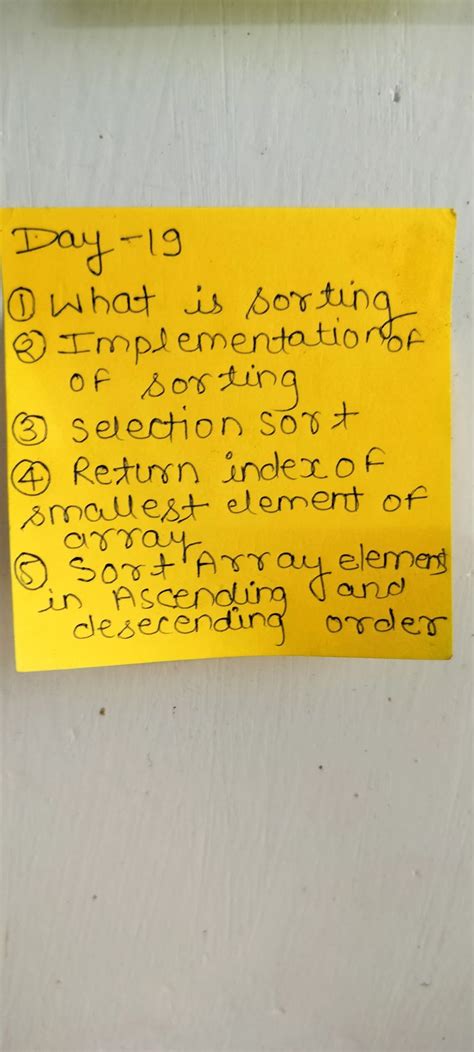 Day - 19
① What is sorting
② Implementation of
of sorting
③ selection sort
④ Return index of
smallest element of
array
⑤ Sort Array element
in Ascending and
desecending order